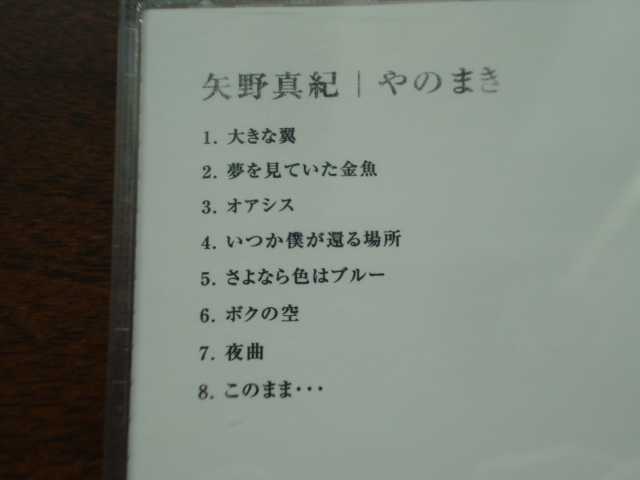 矢野真紀｜やのまき
1. 大きな翼
2. 夢を見ていた金魚
3. オアシス
4. いつか僕が還る場所
5. さよなら色はブルー
6. ボクの空
7. 夜曲
8. このまま・・・